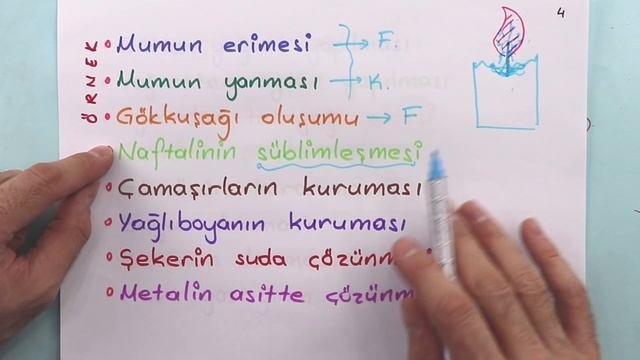 4
ÖRNEK
Mumun erimesi → F.
Mumun yanması → K.
Gökkuşağı oluşumu → F
Naftalinin süblimleşmesi
Çamaşırların kuruması
Yağlıboyanın kuruması
Şekerin suda
Metalin asitte